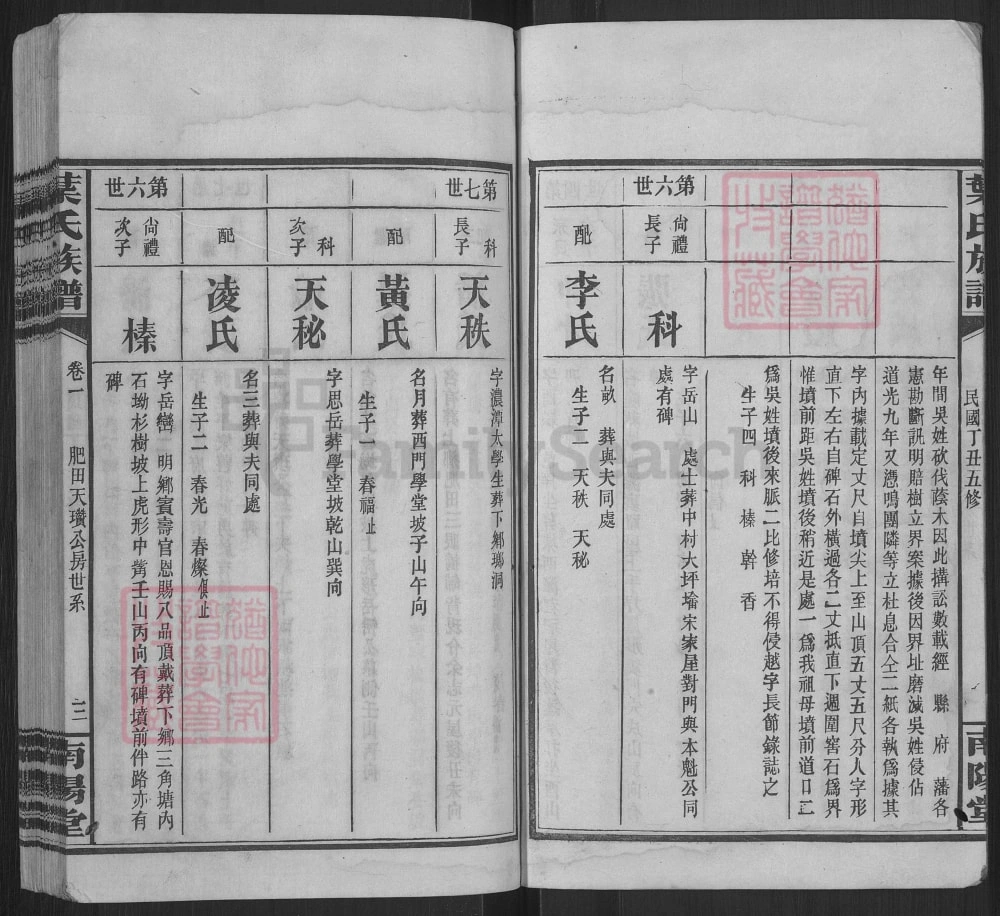 葉氏族譜
民國丁丑五修
南陽堂
年間吳姓砍伐蔭木因此搆訟數載經 縣 府 藩各
憲勘斷訊明賠樹立界案據後因界址磨滅吳姓侵佔
道光九年又憑鳴團隣等立杜息合仝二紙各執爲據其
字內據載定丈尺自墳尖上至山頂五丈五尺分人字形
直下左右自碑石外橫過各二丈抵直下週圍窖石爲界
惟墳前距吳姓墳後稍近是處一爲我祖母墳前道日二
爲吳姓墳後來脈二比修培不得侵越字長節錄誌之
生子四 科 榛 幹 香
第六世
尙禮長子
科
字岳山 處士葬中村大坪塝宋家屋對門與本魁公同
處有碑
配
李氏
名畝 葬與夫同處
生子二 天秩 天秘
第七世
科長子
天秩
字濃沛大學生葬下鄉瑯洞
配
黃氏
名月葬西門學堂坡子山午向
生子一 春福止
科次子
天秘
字思岳葬學堂坡乾山巽向
配
凌氏
名三葬與夫同處
生子二 春光 春燦俱止
第六世
尙禮次子
榛
字岳巒 明鄉賓壽官恩賜八品頂戴葬下鄉三角塘內
石坳杉樹坡上虎形中觜壬山丙向有碑墳前件路亦有
碑
葉氏族譜
卷一
肥田天瓚公房世系
三
南陽堂
FamilySearch